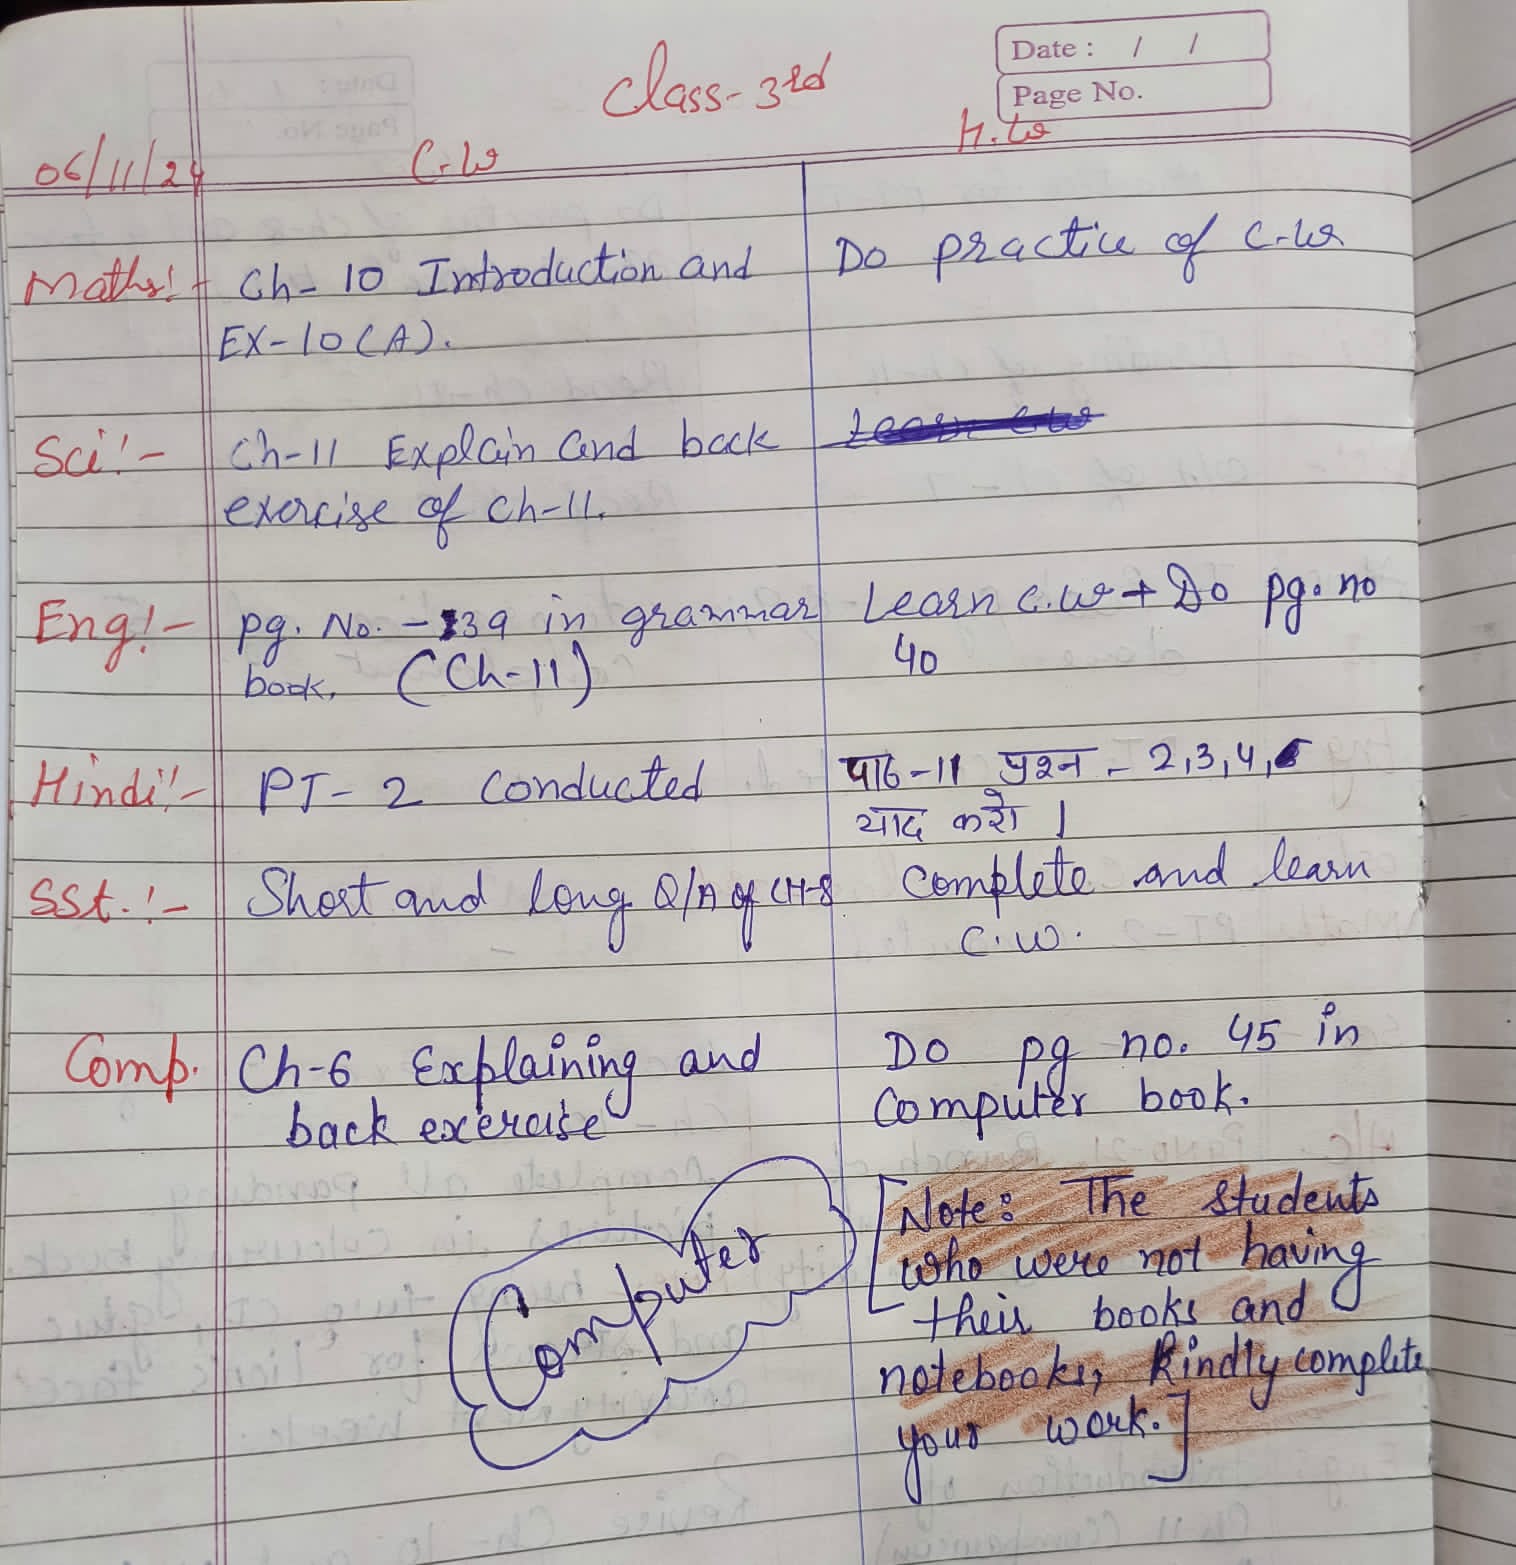 Class-3rd
Date : / /
Page No.
06/11/24 C.W H.W
Maths:- Ch-10 Introduction and Do practice of C.W
EX-10(A).
Sci:- Ch-11 Explain and back
exercise of Ch-11.
Eng:- pg. No. - 39 in grammar Learn C.W + Do pg. no
book. (Ch-11) 40
Hindi:- PT-2 Conducted पाठ-11 प्रश्न - 2,3,4,
याद करो |
SSt.:- Short and Long Q/A of CH-8 Complete and learn
C.W.
Comp. Ch-6 Explaining and Do pg no. 45 in
back exercise Computer book.
Computer
[Note: The Students
who were not having
their books and
notebooks, Kindly complete
your work.]